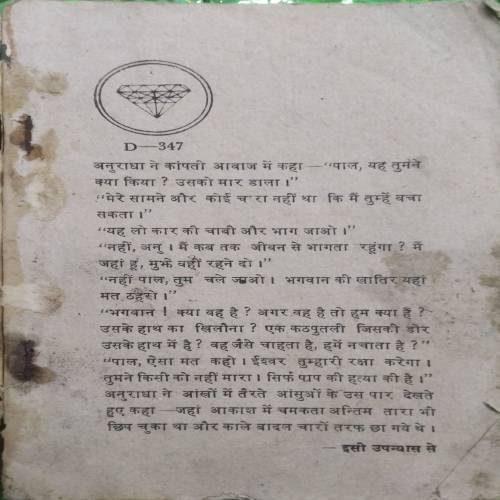 D—347
अनुराधा ने कांपती आवाज में कहा—"पाल, यह तुमने
क्या किया ? उसको मार डाला ।"
"मेरे सामने और कोई चारा नहीं था कि मैं तुम्हें बचा
सकता ।"
"यह लो कार की चाबी और भाग जाओ ।"
"नहीं, अनु । मैं कब तक जीवन से भागता रहूंगा ? मैं
जहां हूं, मुझे वहीं रहने दो ।"
"नहीं पाल, तुम चले जाओ । भगवान की खातिर यहां
मत ठहरो ।"
"भगवान ! क्या वह है ? अगर वह है तो हम क्या हैं ?
उसके हाथ का खिलौना ? एक कठपुतली जिसकी डोर
उसके हाथ में है ? वह जैसे चाहता है, हमें नचाता है ?"
"पाल, ऐसा मत कहो । ईश्वर तुम्हारी रक्षा करेगा ।
तुमने किसी को नहीं मारा । सिर्फ पाप की हत्या की है ।"
अनुराधा ने आंखों में तैरते आंसुओं के उस पार देखते
हुए कहा—जहां आकाश में चमकता अन्तिम तारा भी
छिप चुका था और काले बादल चारों तरफ छा गये थे ।
— इसी उपन्यास से